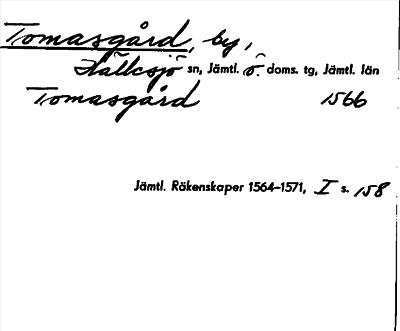 Tomasgård, by,
Hällesjö sn, Jämtl. ö. doms. tg, Jämtl. län
Tomasgård 1566
Jämtl. Räkenskaper 1564-1571, I s. 158